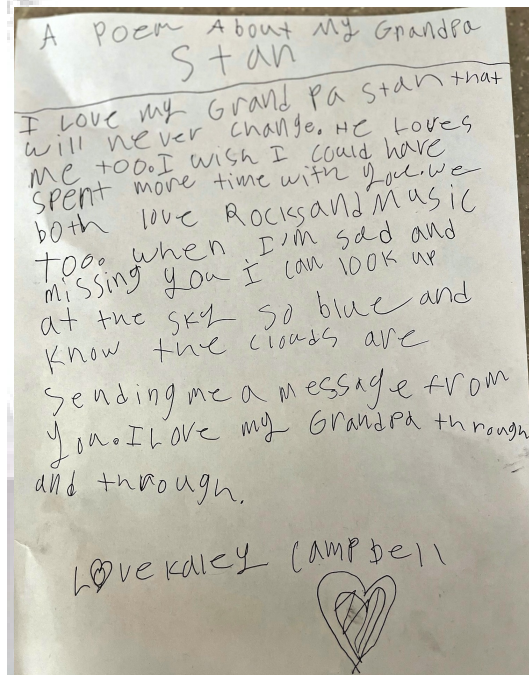 A Poem About My Grandpa
Stan
I Love my Grand pa Stan that
will never change. He Loves
me too. I wish I could have
spent more time with you. we
both love Rocks and Music
too. when I'm sad and
missing you I can look up
at the sky so blue and
know the clouds are
sending me a message from
you. I Love my Grandpa through
and through.
Love Kaley Campbell